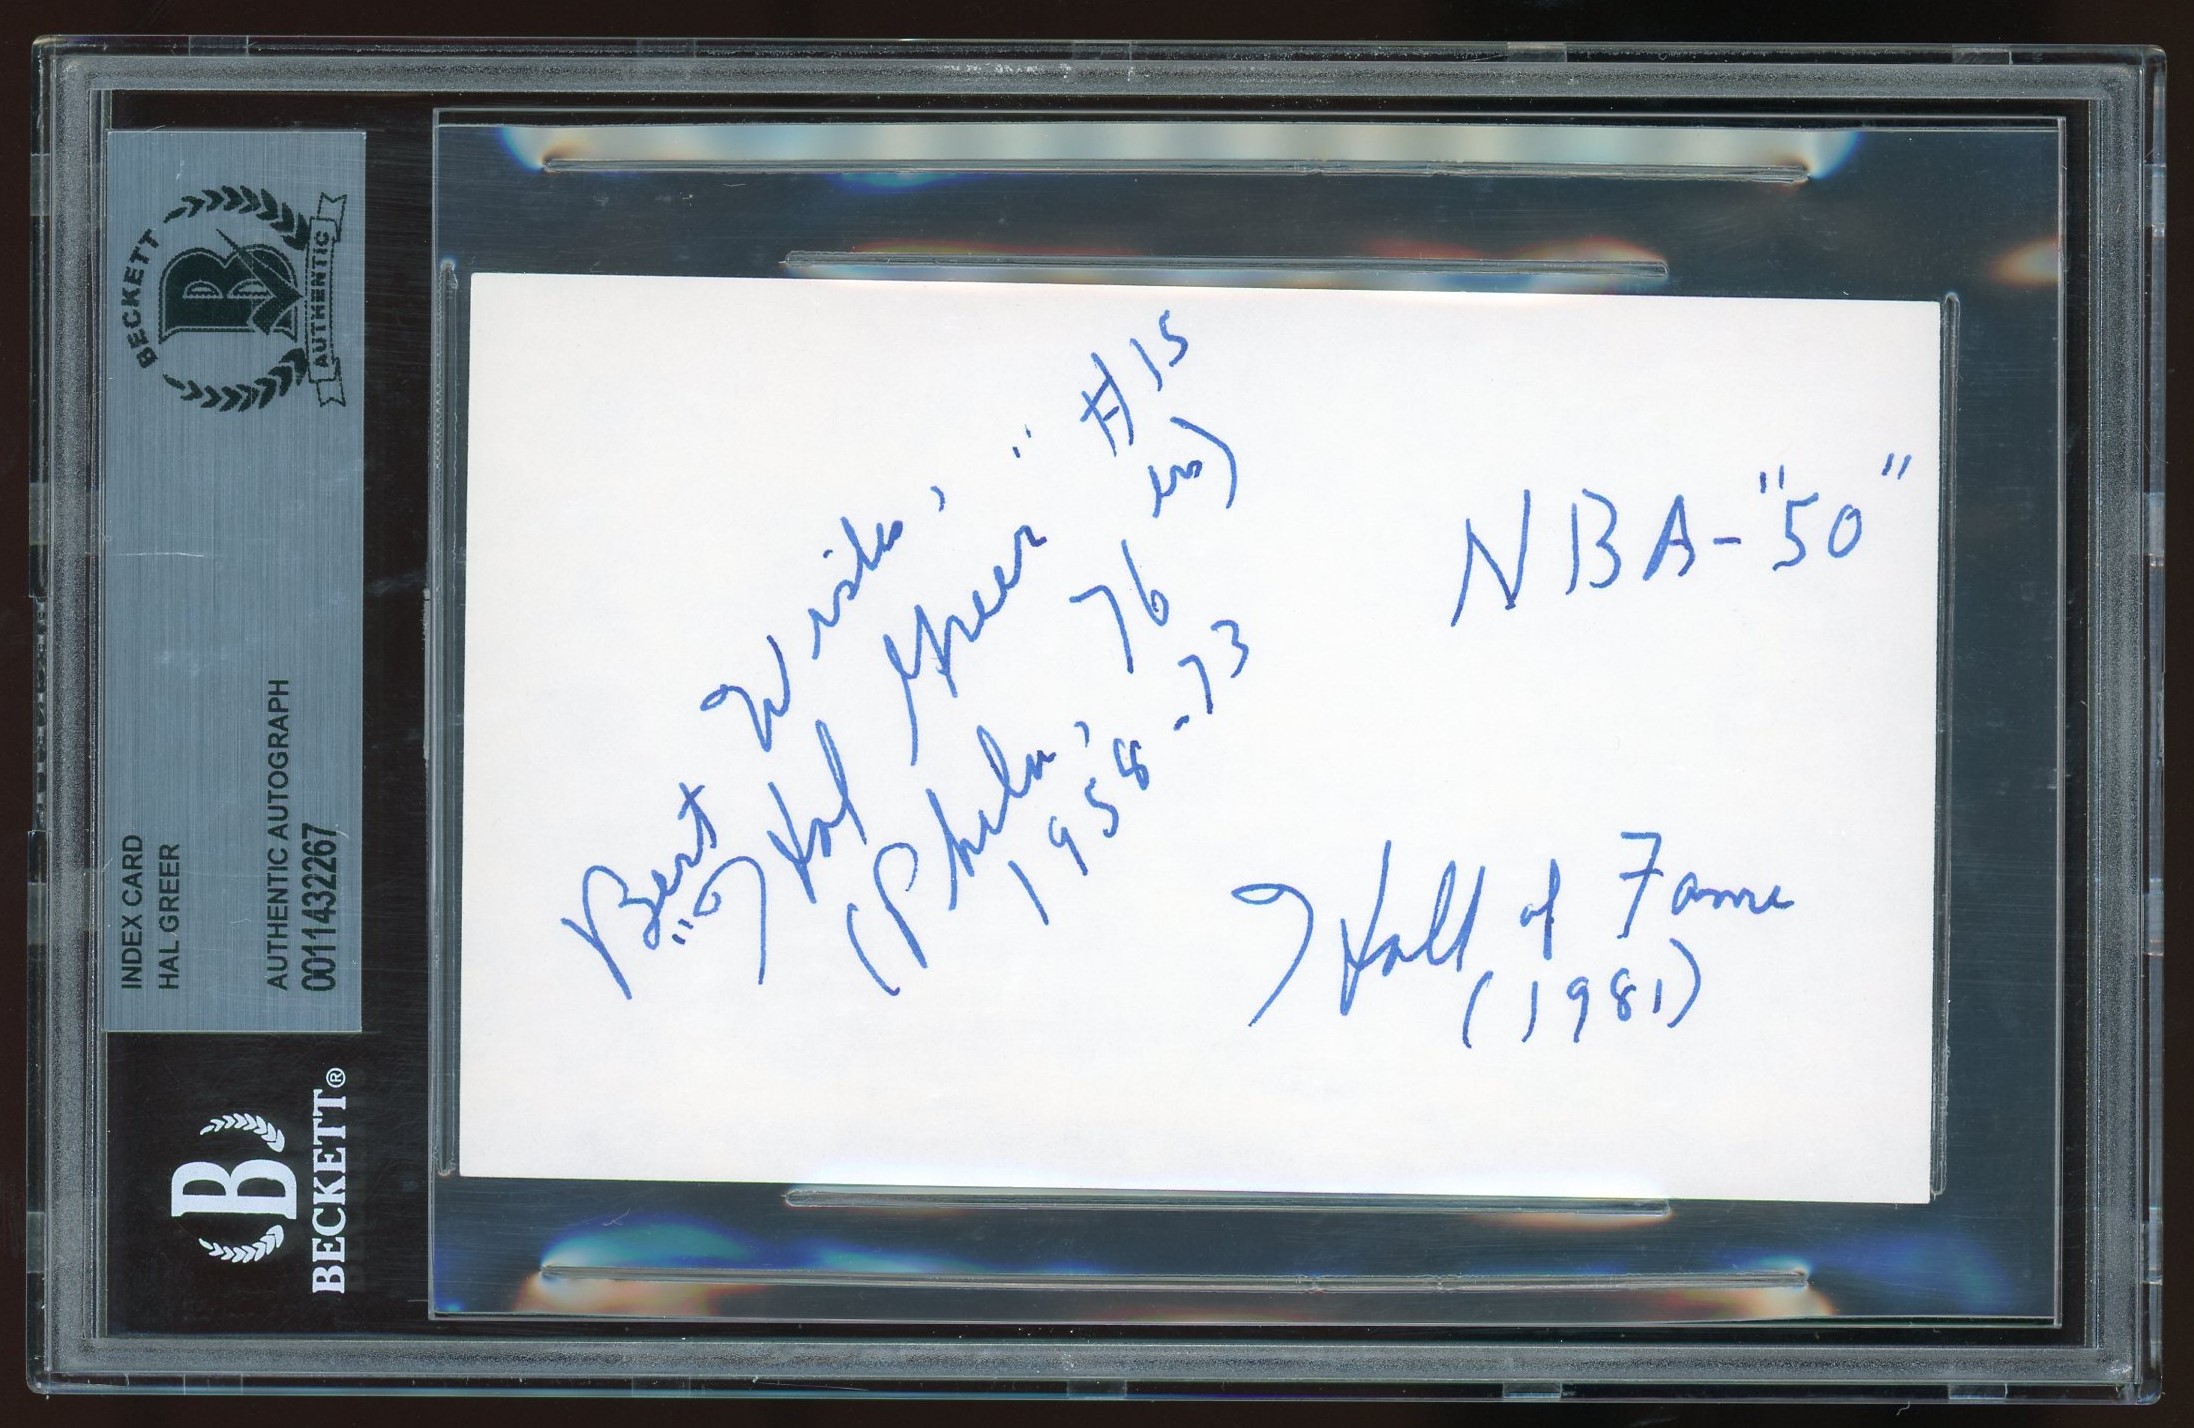 BECKETT
AUTHENTIC
INDEX CARD
HAL GREER
AUTHENTIC AUTOGRAPH
0011432267
BECKETT®
Best Wishes,
"Hal Greer" #15
(Phila, 76ers)
1958-73
NBA-"50"
Hall of Fame
(1981)